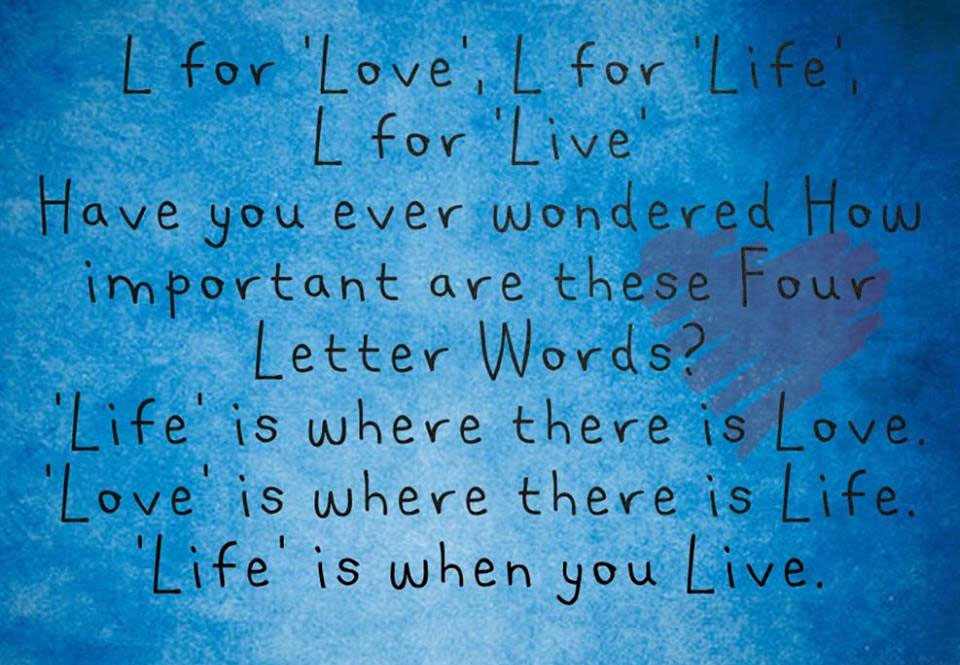 L for 'Love', L for 'Life',
L for 'Live'
Have you ever wondered How
important are these Four
Letter Words?
'Life' is where there is Love.
'Love' is where there is Life.
'Life' is when you Live.